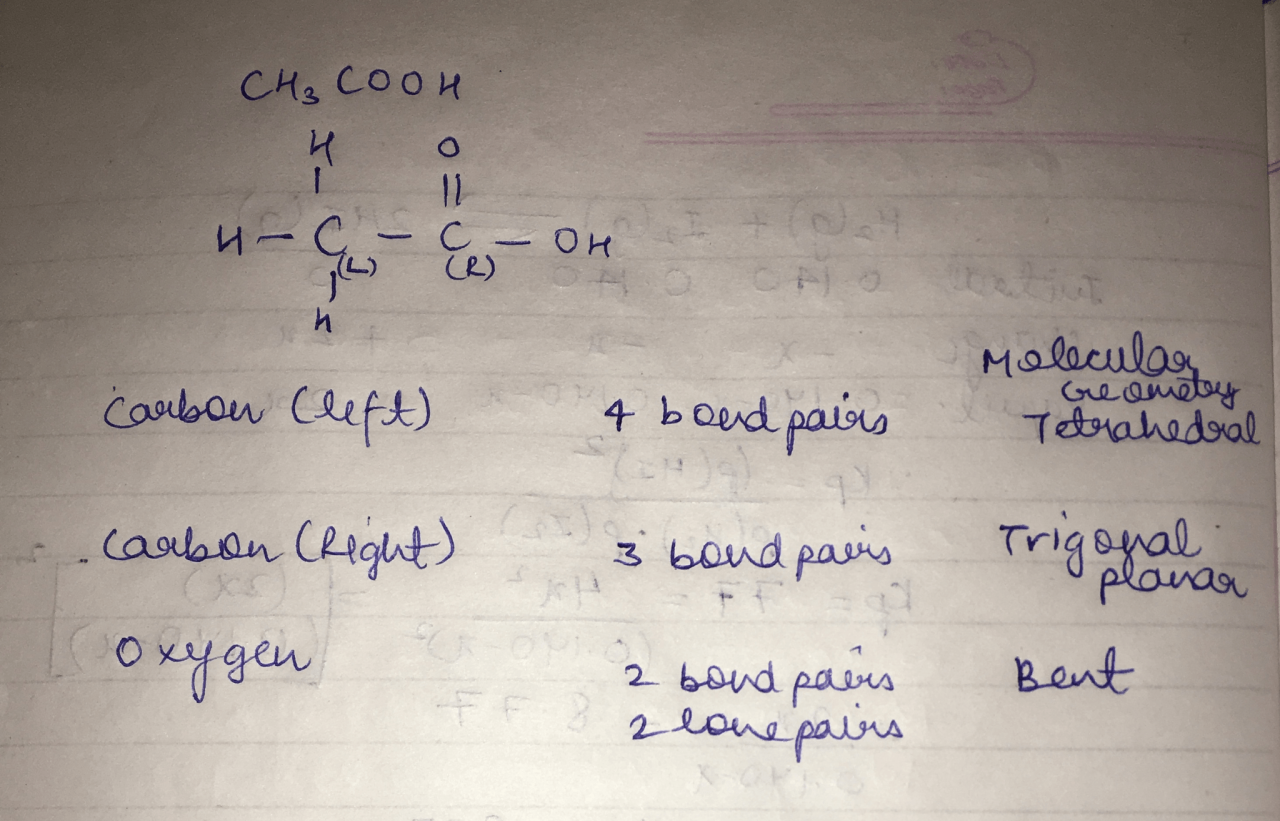 CH₃COOH
H O
| ||
H – C – C – OH
(L) (R)
|
H
Carbon (left) 4 bond pairs Molecular Geometry Tetrahedral
Carbon (Right) 3 bond pairs Trigonal planar
Oxygen 2 bond pairs Bent
2 lone pairs